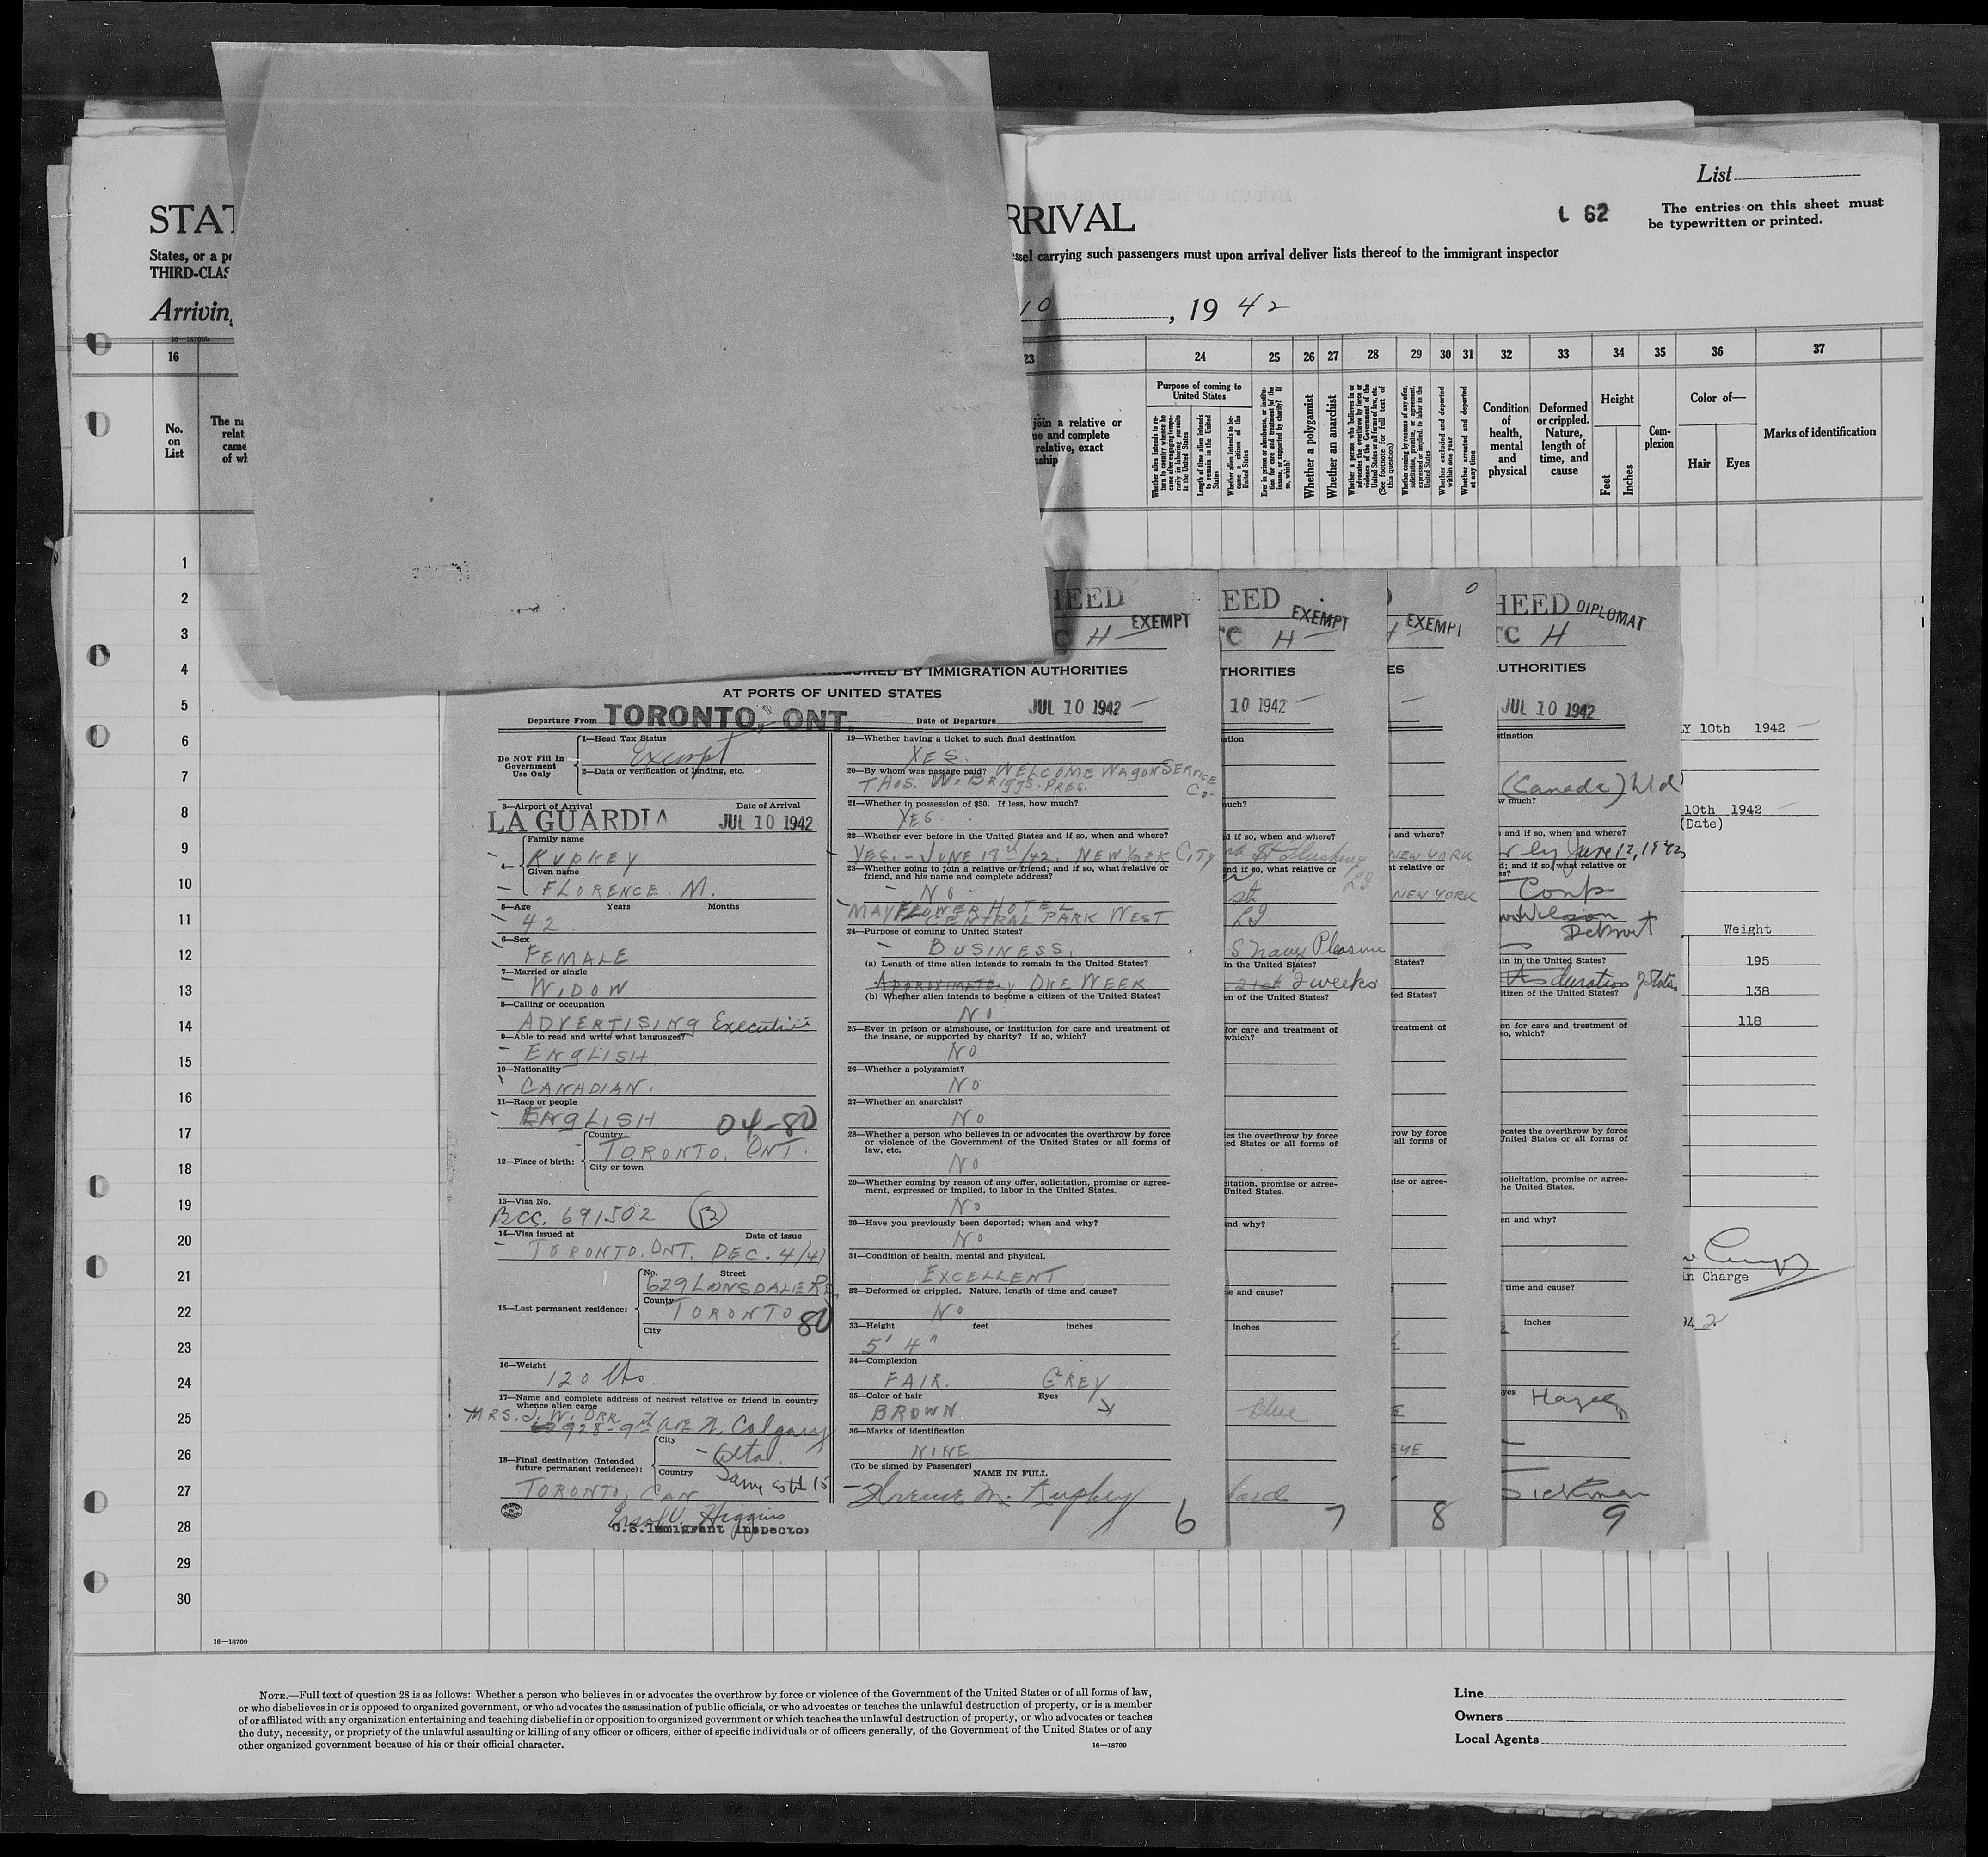 List
STAT
RRIVAL
L 62
The entries on this sheet must
be typewritten or printed.
States, or a po
ssel carrying such passengers must upon arrival deliver lists thereof to the immigrant inspector
THIRD-CLAS
Arriving
10, 19 42
16—18709
16
23
24
25
26
27
28
29
30
31
32
33
34
35
36
37
No.
on
List
The na
relat
came
of wh
join a relative or
me and complete
relative, exact
nship
Purpose of coming to
United States
Whether a polygamist
Whether an anarchist
Condition
of
health,
mental
and
physical
Deformed
or crippled.
Nature,
length of
time, and
cause
Height
Feet
Inches
Com-
plexion
Color of—
Hair
Eyes
Marks of identification
1
2
3
4
5
6
7
8
9
10
11
12
13
14
15
16
17
18
19
20
21
22
23
24
25
26
27
28
29
30
HEED
C H EXEMPT
REQUIRED BY IMMIGRATION AUTHORITIES
AT PORTS OF UNITED STATES
Departure From TORONTO, ONT.
Date of Departure JUL 10 1942
Do NOT Fill In
Government
Use Only
1—Head Tax Status
Exempt
2—Data or verification of landing, etc.
3—Airport of Arrival
Date of Arrival
LA GUARDIA JUL 10 1942
4
Family name
KUPKEY
Given name
FLORENCE M.
5—Age Years Months
42
6—Sex
FEMALE
7—Married or single
WIDOW
8—Calling or occupation
ADVERTISING Executive
9—Able to read and write what languages?
ENGLISH
10—Nationality
CANADIAN.
11—Race or people
ENGLISH 04-80
12—Place of birth:
Country
TORONTO, ONT.
City or town
13—Visa No.
BCC. 691502 B
14—Visa issued at Date of issue
TORONTO, ONT. DEC. 4/41
15—Last permanent residence:
No. Street
629 LONSDALE RD.
County
TORONTO 80
City
16—Weight
120 lbs.
17—Name and complete address of nearest relative or friend in country
whence alien came
MRS. J. W. ORR
928-9th Ave N. Calgary
Alta.
18—Final destination (Intended
future permanent residence):
City
Country
Same as # 15
TORONTO, CAN
Higgins
U.S. Immigrant Inspector
19—Whether having a ticket to such final destination
YES.
20—By whom was passage paid? WELCOME WAGON SERVICE
THOS. W. BRIGGS. PRES. Co.
21—Whether in possession of $50. If less, how much?
YES.
22—Whether ever before in the United States and if so, when and where?
YES. - JUNE 18th/42. NEW YORK CITY
23—Whether going to join a relative or friend; and if so, what relative or
friend, and his name and complete address?
NO
MAYFLOWER HOTEL
CENTRAL PARK WEST
24—Purpose of coming to United States?
BUSINESS.
(a) Length of time alien intends to remain in the United States?
APPROXIMATELY ONE WEEK
(b) Whether alien intends to become a citizen of the United States?
NO
25—Ever in prison or almshouse, or institution for care and treatment of
the insane, or supported by charity? If so, which?
NO
26—Whether a polygamist?
NO
27—Whether an anarchist?
NO
28—Whether a person who believes in or advocates the overthrow by force
or violence of the Government of the United States or all forms of
law, etc.
NO
29—Whether coming by reason of any offer, solicitation, promise or agree-
ment, expressed or implied, to labor in the United States.
NO
30—Have you previously been deported; when and why?
NO
31—Condition of health, mental and physical.
EXCELLENT
32—Deformed or crippled. Nature, length of time and cause?
NO
33—Height feet inches
5' 4"
34—Complexion
FAIR. GREY
35—Color of hair Eyes
BROWN
36—Marks of identification
NINE
(To be signed by Passenger)
NAME IN FULL
Florence M. Kupkey
6
EED EXEMPT
TC H
THORITIES
10 1942
ation
uch?
d if so, when and where?
nd St Flushing
and if so, what relative or
LI
S Navy Pleasure
in the United States?
2 weeks
en of the United States?
for care and treatment of
which?
es the overthrow by force
ed States or all forms of
citation, promise or agree-
United States.
and why?
e and cause?
inches
blue
7
EXEMPT
ES
and where?
NEW YORK
t relative or
NEW YORK
States?
ted States?
treatment of
row by force
all forms of
ise or agree-
8
HEED DIPLOMAT
TC H
UTHORITIES
JUL 10 1942
stination
(Canada) Ltd
w much?
and if so, when and where?
June 12, 1942
d; and if so, what relative or
ss?
Corp
Wilson
Detroit
in in the United States?
duration
citizen of the United States?
on for care and treatment of
so, which?
ocates the overthrow by force
United States or all forms of
solicitation, promise or agree-
he United States.
en and why?
time and cause?
inches
yes Hazel
9
LY 10th 1942
10th 1942
(Date)
Weight
195
138
118
in Charge
942
16—18709
NOTE.—Full text of question 28 is as follows: Whether a person who believes in or advocates the overthrow by force or violence of the Government of the United States or of all forms of law,
or who disbelieves in or is opposed to organized government, or who advocates the assassination of public officials, or who advocates or teaches the unlawful destruction of property, or is a member
of or affiliated with any organization entertaining and teaching disbelief in or opposition to organized government or which teaches the unlawful destruction of property, or who advocates or teaches
the duty, necessity, or propriety of the unlawful assaulting or killing of any officer or officers, either of specific individuals or of officers generally, of the Government of the United States or of any
other organized government because of his or their official character.
16—18709
Line
Owners
Local Agents